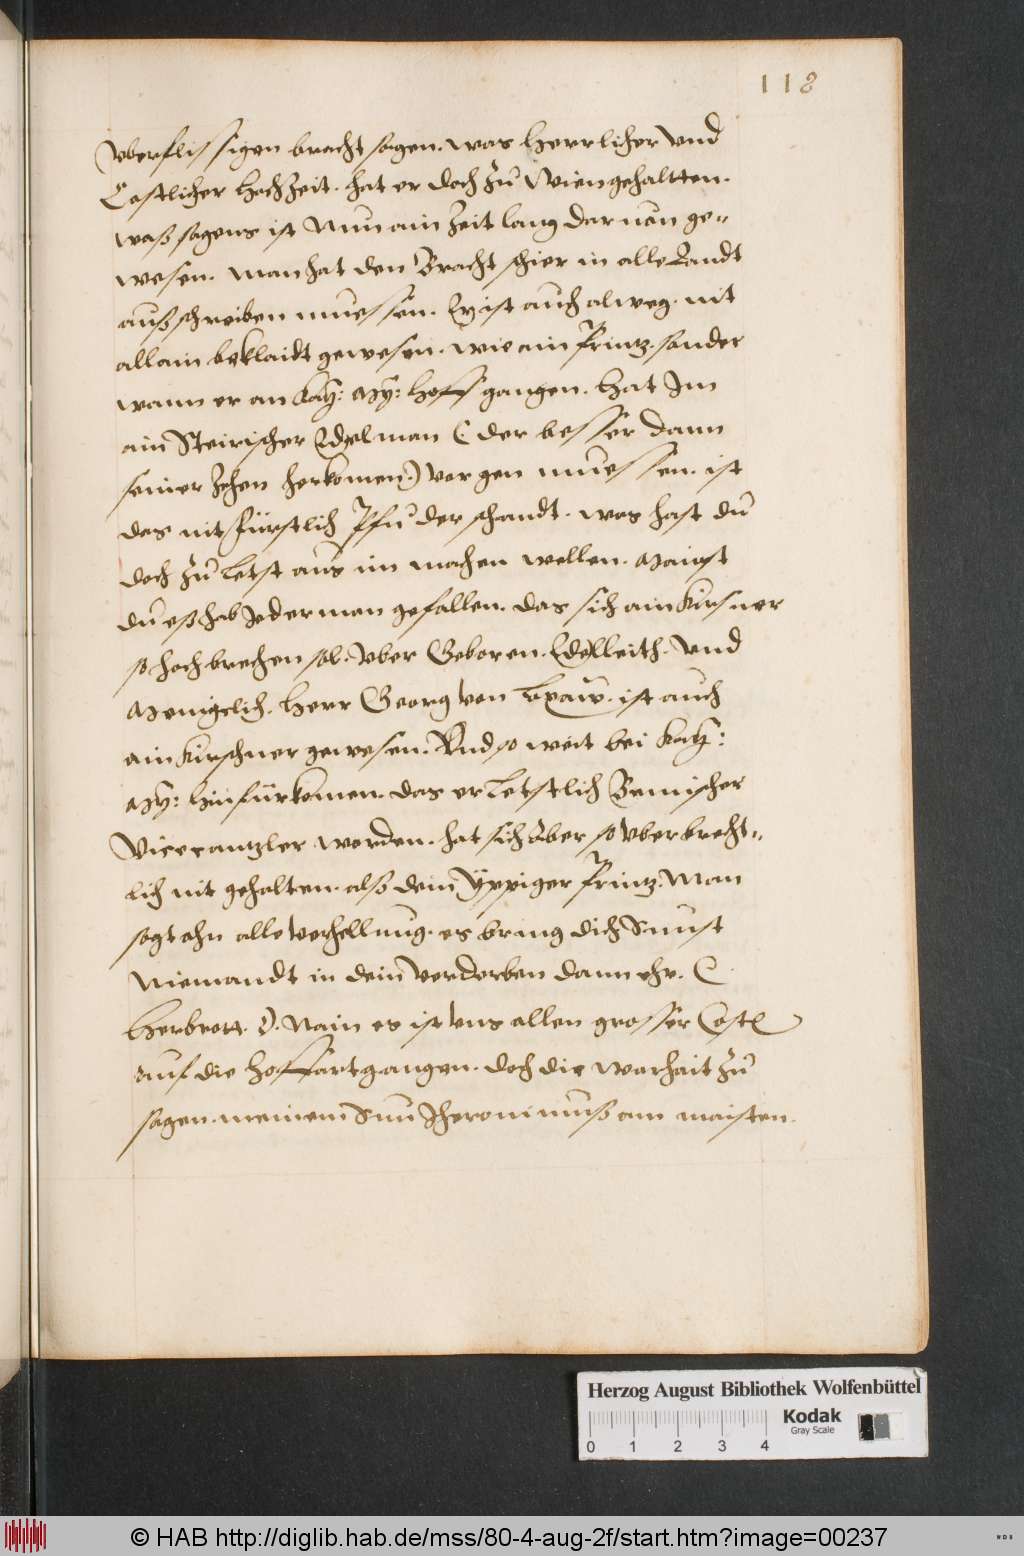 118
vberflissigen bracht sagen. was herrlicher vnd
Costlicher hochzeit. hat er doch zu Wien gehaltten.
waß sagens ist Nun ain zeit lang dar uan ge-
wesen. man hat den Bracht schier in alle Landt
auß schreiben muessen. Er ist auch alweg. nit
allain beklaidt gewesen. wie ain Printz. sonder
wann er an Kay: My: Hoff gangen. hat Im
ain Steirischer Edelman (der besser dann
seiner zehen herkomen) vor gen muessen. ist
das nit fürstlich Pfu der schandt. was hast du
doch zu letst aus im machen wellen. Mainst
du eß hab Jederman gefallen. das sich ain Kirsner
so hoch brechen sol. vber Geboren. Edelleith. vnd
Menigclich. Herr Georg von Loxaw. ist auch
ain Kirschner gewesen. Vnd so weit bei Kay:
My: hinfür komen. das er letstlich Bemischer
Vicecantzler worden. hat sich aber so vber brecht-
lich nit gehalten. alß dein Yppiger Printz. Man
sagt ahn alle verhellung. es bring dich Sunst
Niemandt in dein verderben dann ehr. C
Herbrott. D. Nain es ist vns allen grosser Cost
auf die hoffart gangen. doch die warhait zu
sagen. meinem Sun Jheronimuß am maisten.
Herzog August Bibliothek Wolfenbüttel
Kodak
Gray Scale
0 1 2 3 4
© HAB http://diglib.hab.de/mss/80-4-aug-2f/start.htm?image=00237